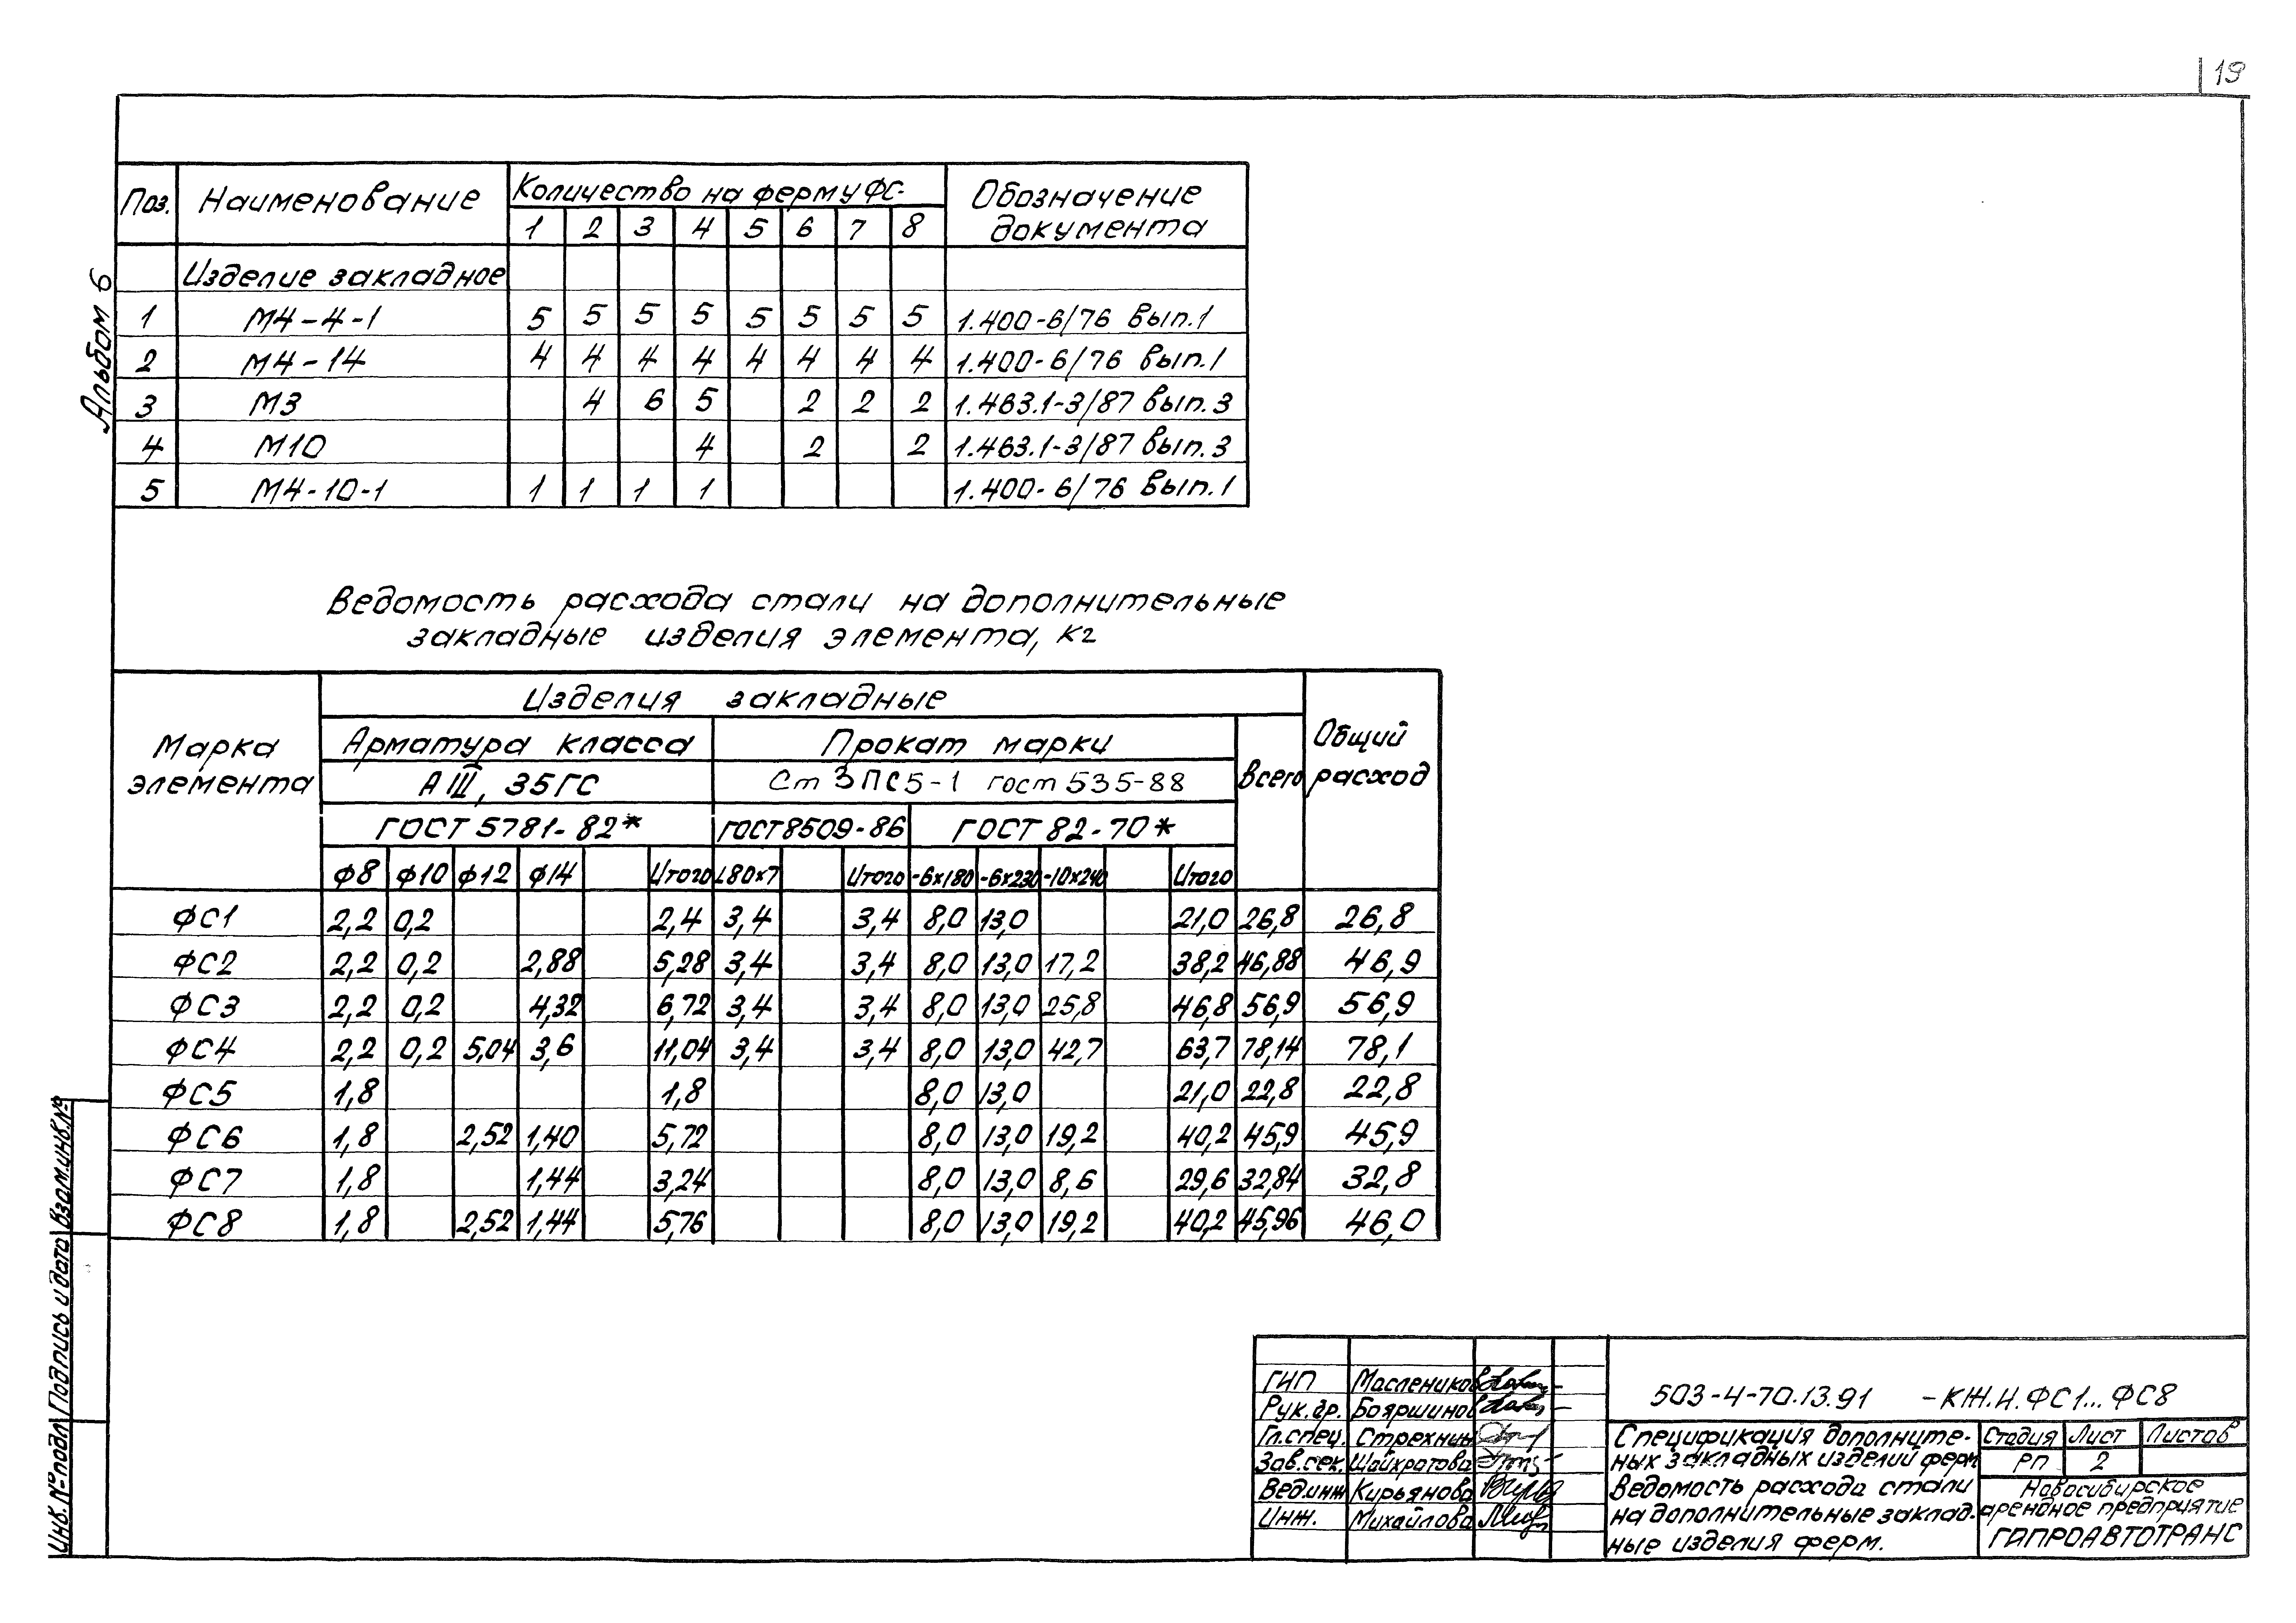 19
Альбом 6
Поз. Наименование Количество на ферму ФС- Обозначение документа
1 2 3 4 5 6 7 8
Изделие закладное
1 М4-4-1 5 5 5 5 5 5 5 5 1.400-6/76 вып.1
2 М4-14 4 4 4 4 4 4 4 4 1.400-6/76 вып.1
3 М3 4 6 5 2 2 2 1.463.1-3/87 вып.3
4 М10 4 2 2 1.463.1-3/87 вып.3
5 М4-10-1 1 1 1 1 1.400-6/76 вып.1
Ведомость расхода стали на дополнительные
закладные изделия элемента, кг
Марка элемента Изделия закладные Общий расход
Арматура класса Прокат марки Всего
А III, 35ГС Ст 3ПС5-1 гост 535-88
ГОСТ 5781-82* ГОСТ8509-86 ГОСТ 82-70*
Ф8 Ф10 Ф12 Ф14 Итого L80х7 Итого -6х180 -6х230 -10х240 Итого
ФС1 2,2 0,2 2,4 3,4 3,4 8,0 13,0 21,0 26,8 26,8
ФС2 2,2 0,2 2,88 5,28 3,4 3,4 8,0 13,0 17,2 38,2 46,88 46,9
ФС3 2,2 0,2 4,32 6,72 3,4 3,4 8,0 13,0 25,8 46,8 56,9 56,9
ФС4 2,2 0,2 5,04 3,6 11,04 3,4 3,4 8,0 13,0 42,7 63,7 78,14 78,1
ФС5 1,8 1,8 8,0 13,0 21,0 22,8 22,8
ФС6 1,8 2,52 1,40 5,72 8,0 13,0 19,2 40,2 45,9 45,9
ФС7 1,8 1,44 3,24 8,0 13,0 8,6 29,6 32,84 32,8
ФС8 1,8 2,52 1,44 5,76 8,0 13,0 19,2 40,2 45,96 46,0
Инв. № подл Подпись и дата Взам.инв.№
ГИП Маслеников
Рук.гр. Бояршинов
Гл.спец. Стрехнин
Зав.сек. Шайхратова
Вед.инж Кирьянова
Инж. Михайлова
503-4-70.13.91 -КЖ.И.ФС1...ФС8
Спецификация дополните-
ных закладных изделий ферм
Ведомость расхода стали
на дополнительные заклад-
ные изделия ферм.
Стадия Лист Листов
РП 2
Новосибирское
арендное предприятие
ГИПРОАВТОТРАНС